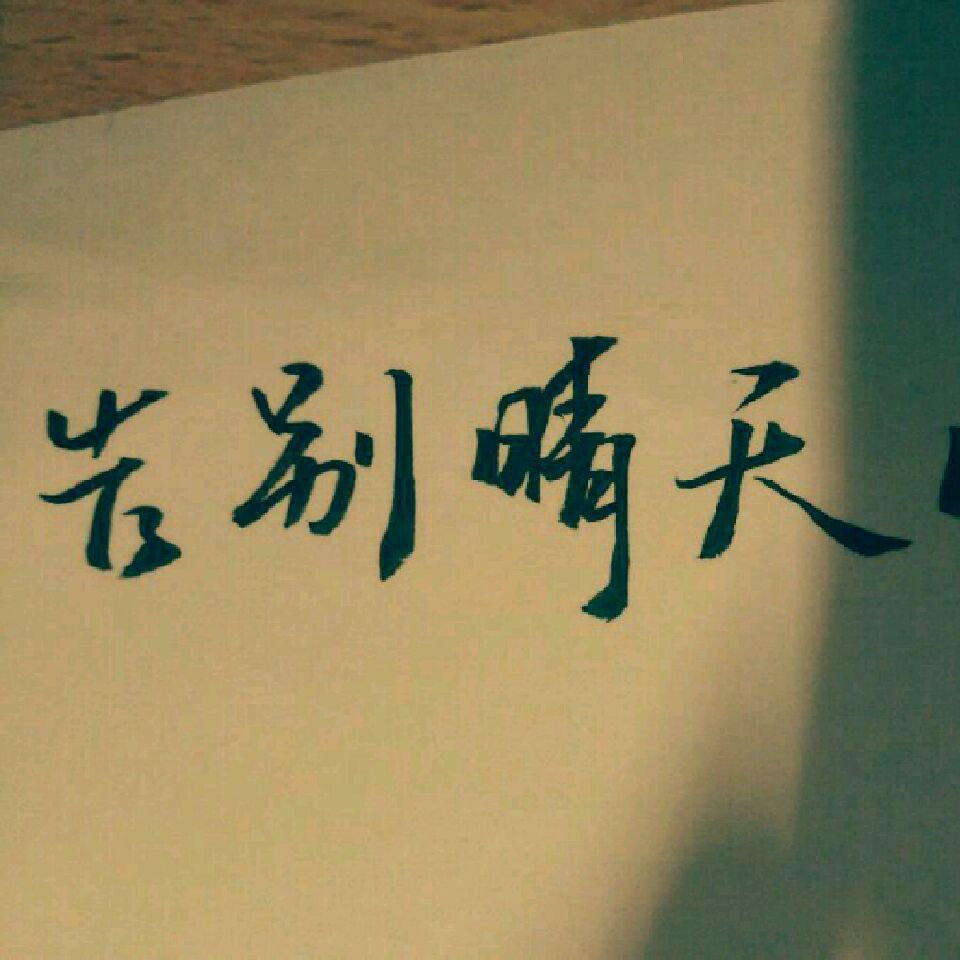 告别晴天